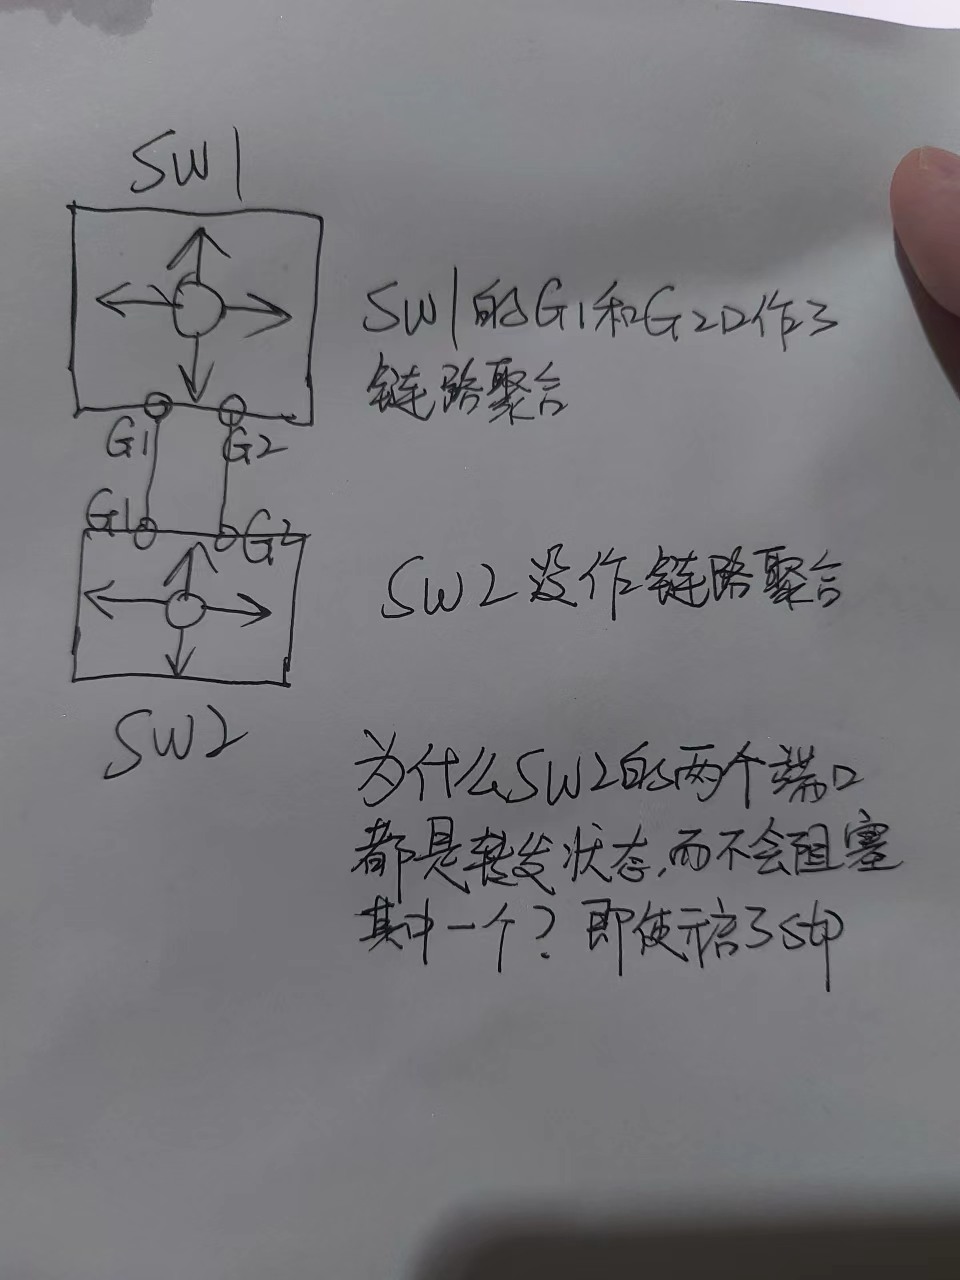 SW1
SW1的G1和G2口作了
链路聚合
G1
G2
G1
G2
SW2没作链路聚合
SW2
为什么SW2的两个端口
都是转发状态,而不会阻塞
其中一个?即使开启了stp